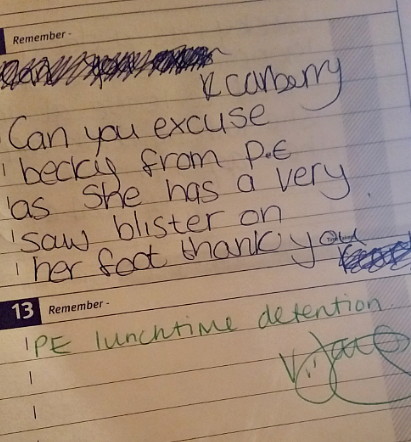 Remember -
K carberry
Can you excuse
becky from P.E
as she has a very
saw blister on
her foot thank you
13 Remember -
PE lunchtime detention